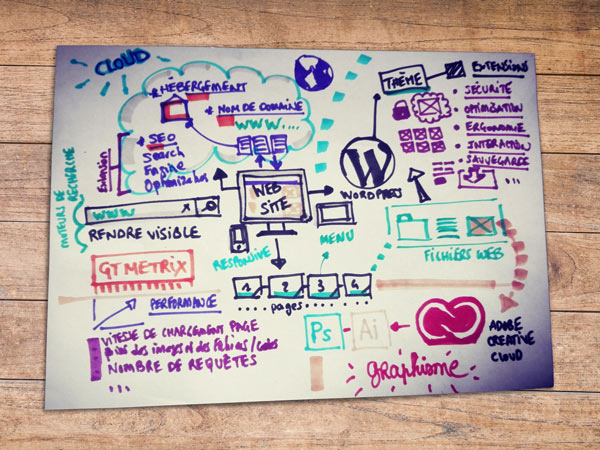 CLOUD
HÉBERGEMENT
NOM DE DOMAINE
WWW....
SEO
Search
Engine
Optimization
MOTEURS DE
RECHERCHE
WWW
RENDRE VISIBLE
WEB
SITE
RESPONSIVE
MENU
1 2 3 4
pages
THÈME
EXTENSIONS
SÉCURITÉ
OPTIMISATION
ERGONOMIE
INTERACTION
SAUVEGARDE
...
W
WORDPRESS
FICHIERS WEB
GT METRIX
PERFORMANCE
VITESSE DE CHARGEMENT PAGE
Poids des images et des fichiers / codes
NOMBRE DE REQUÊTES
...
Ps
Ai
ADOBE
CREATIVE
CLOUD
graphisme